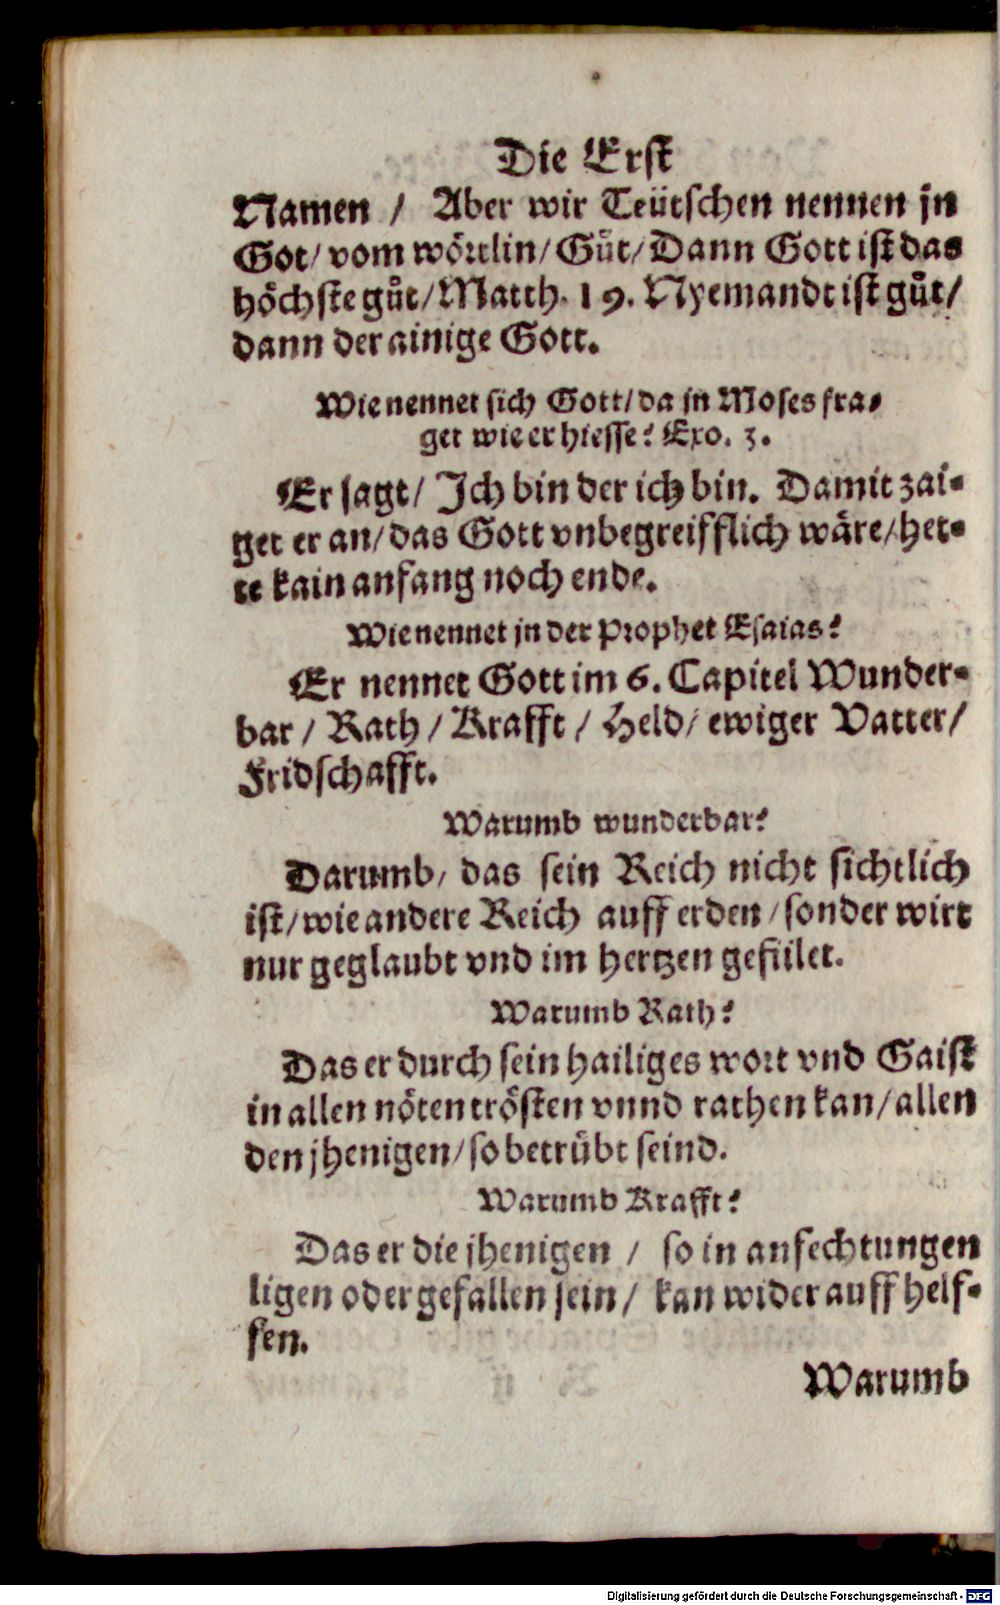 Die Erſt
Namen / Aber wir Teütſchen nennen jn
Got / vom wörtlin / Gůt / Dann Gott iſt das
höchſte gůt / Matth. 19. Nyemandt iſt gůt /
dann der ainige Gott.
Wie nennet ſich Gott / da jn Moſes fra-
get wie er hieſſe? Exo. 3.
Er ſagt / Ich bin der ich bin. Damit zai-
get er an / das Gott vnbegreifflich wäre / het-
te kain anfang noch ende.
Wie nennet jn der Prophet Eſaias?
Er nennet Gott im 6. Capitel Wunder-
bar / Rath / Krafft / Held / ewiger Vatter /
Fridſchafft.
Warumb wunderbar?
Darumb / das ſein Reich nicht ſichtlich
iſt / wie andere Reich auff erden / ſonder wirt
nur geglaubt vnd im hertzen gefület.
Warumb Rath?
Das er durch ſein hailiges wort vnd Gaiſt
in allen nöten tröſten vnnd rathen kan / allen
den jhenigen / ſo betrübt ſeind.
Warumb Krafft?
Das er die jhenigen / ſo in anfechtungen
ligen oder gefallen ſein / kan wider auff helf-
fen.
Warumb
Digitalisierung gefördert durch die Deutsche Forschungsgemeinschaft - DFG